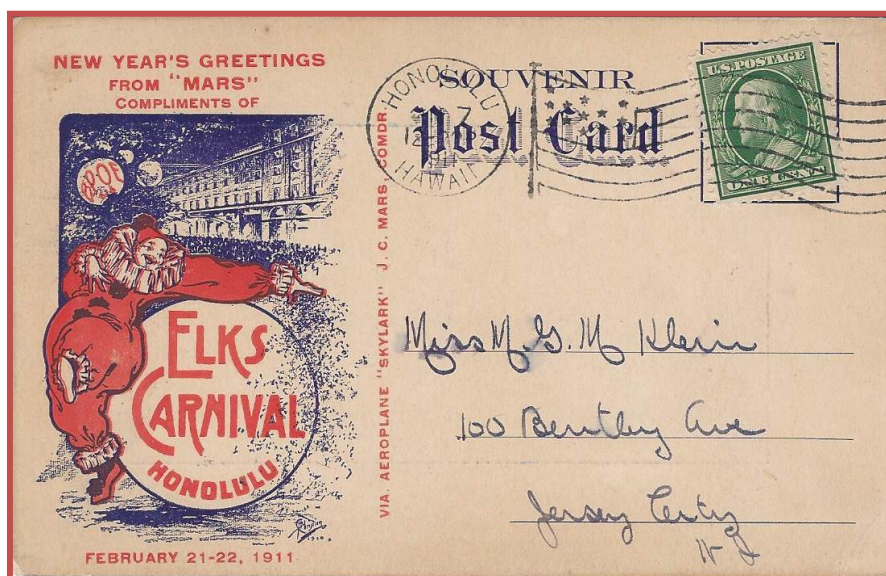 NEW YEAR'S GREETINGS
FROM "MARS"
COMPLIMENTS OF
B.P.O.E
ELKS
CARNIVAL
HONOLULU
1910
FEBRUARY 21-22, 1911
VIA. AEROPLANE "SKYLARK" J. C. MARS, COMDR.
SOUVENIR
Post Card
HONOLULU
7
HAWAII
U.S. POSTAGE
ONE CENT
Miss M. G. M Klein
100 Bentley Ave
Jersey City
N J